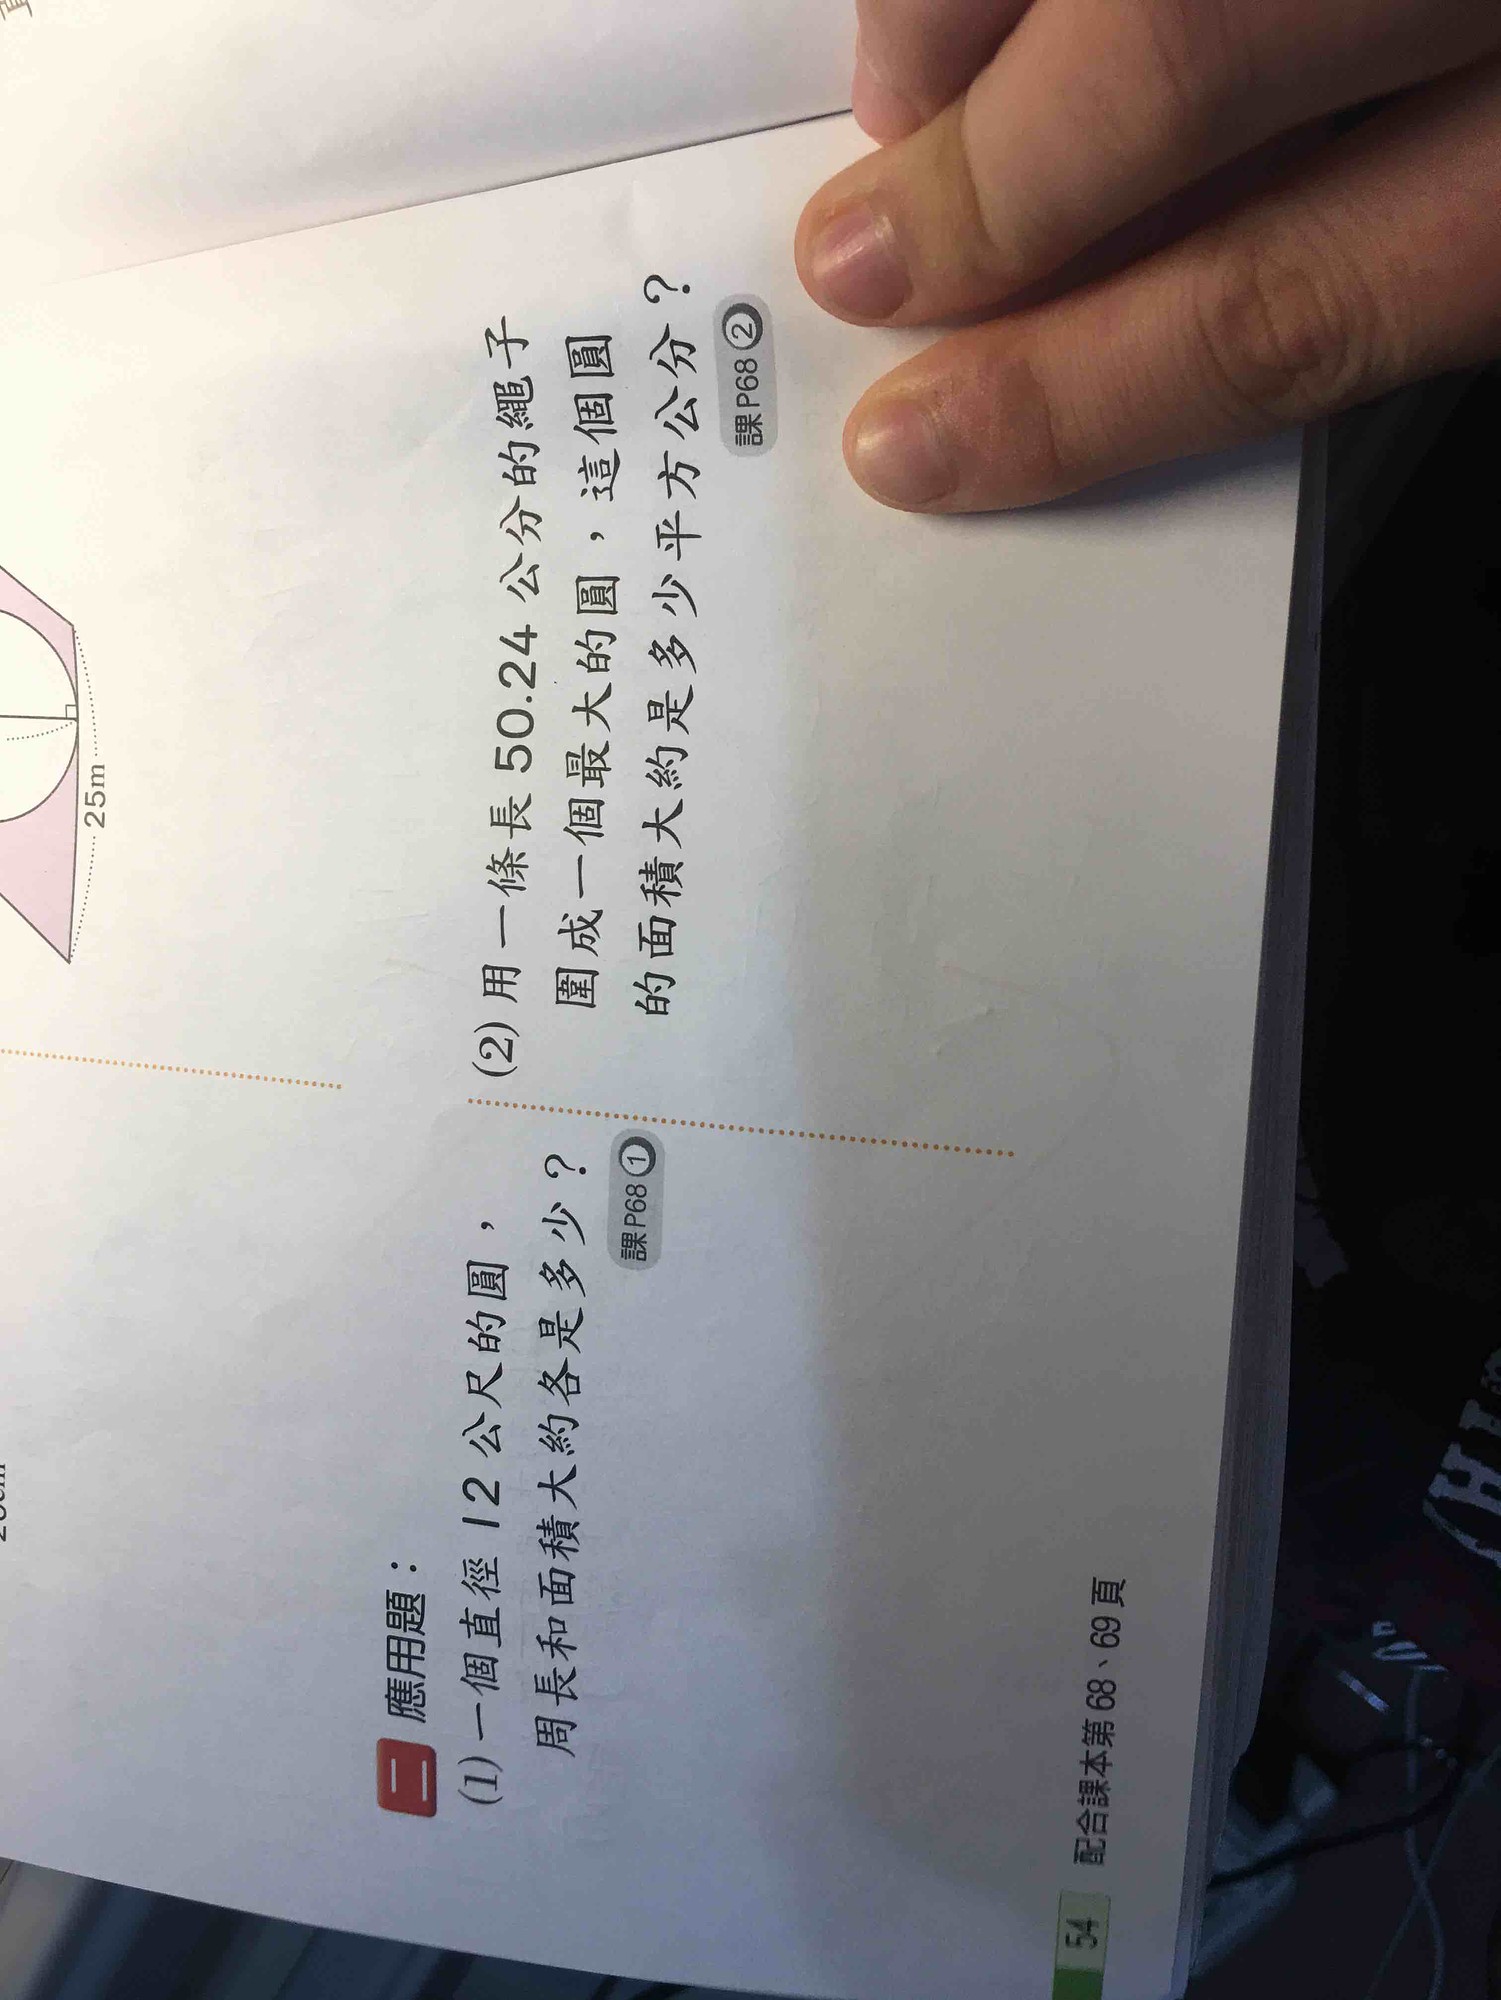 25m
二 應用題：
(1) 一個直徑 12 公尺的圓，
周長和面積大約各是多少？
課P68 ①
(2) 用一條長 50.24 公分的繩子
圍成一個最大的圓，這個圓
的面積大約是多少平方公分？
課P68 ②
54 配合課本第 68、69 頁